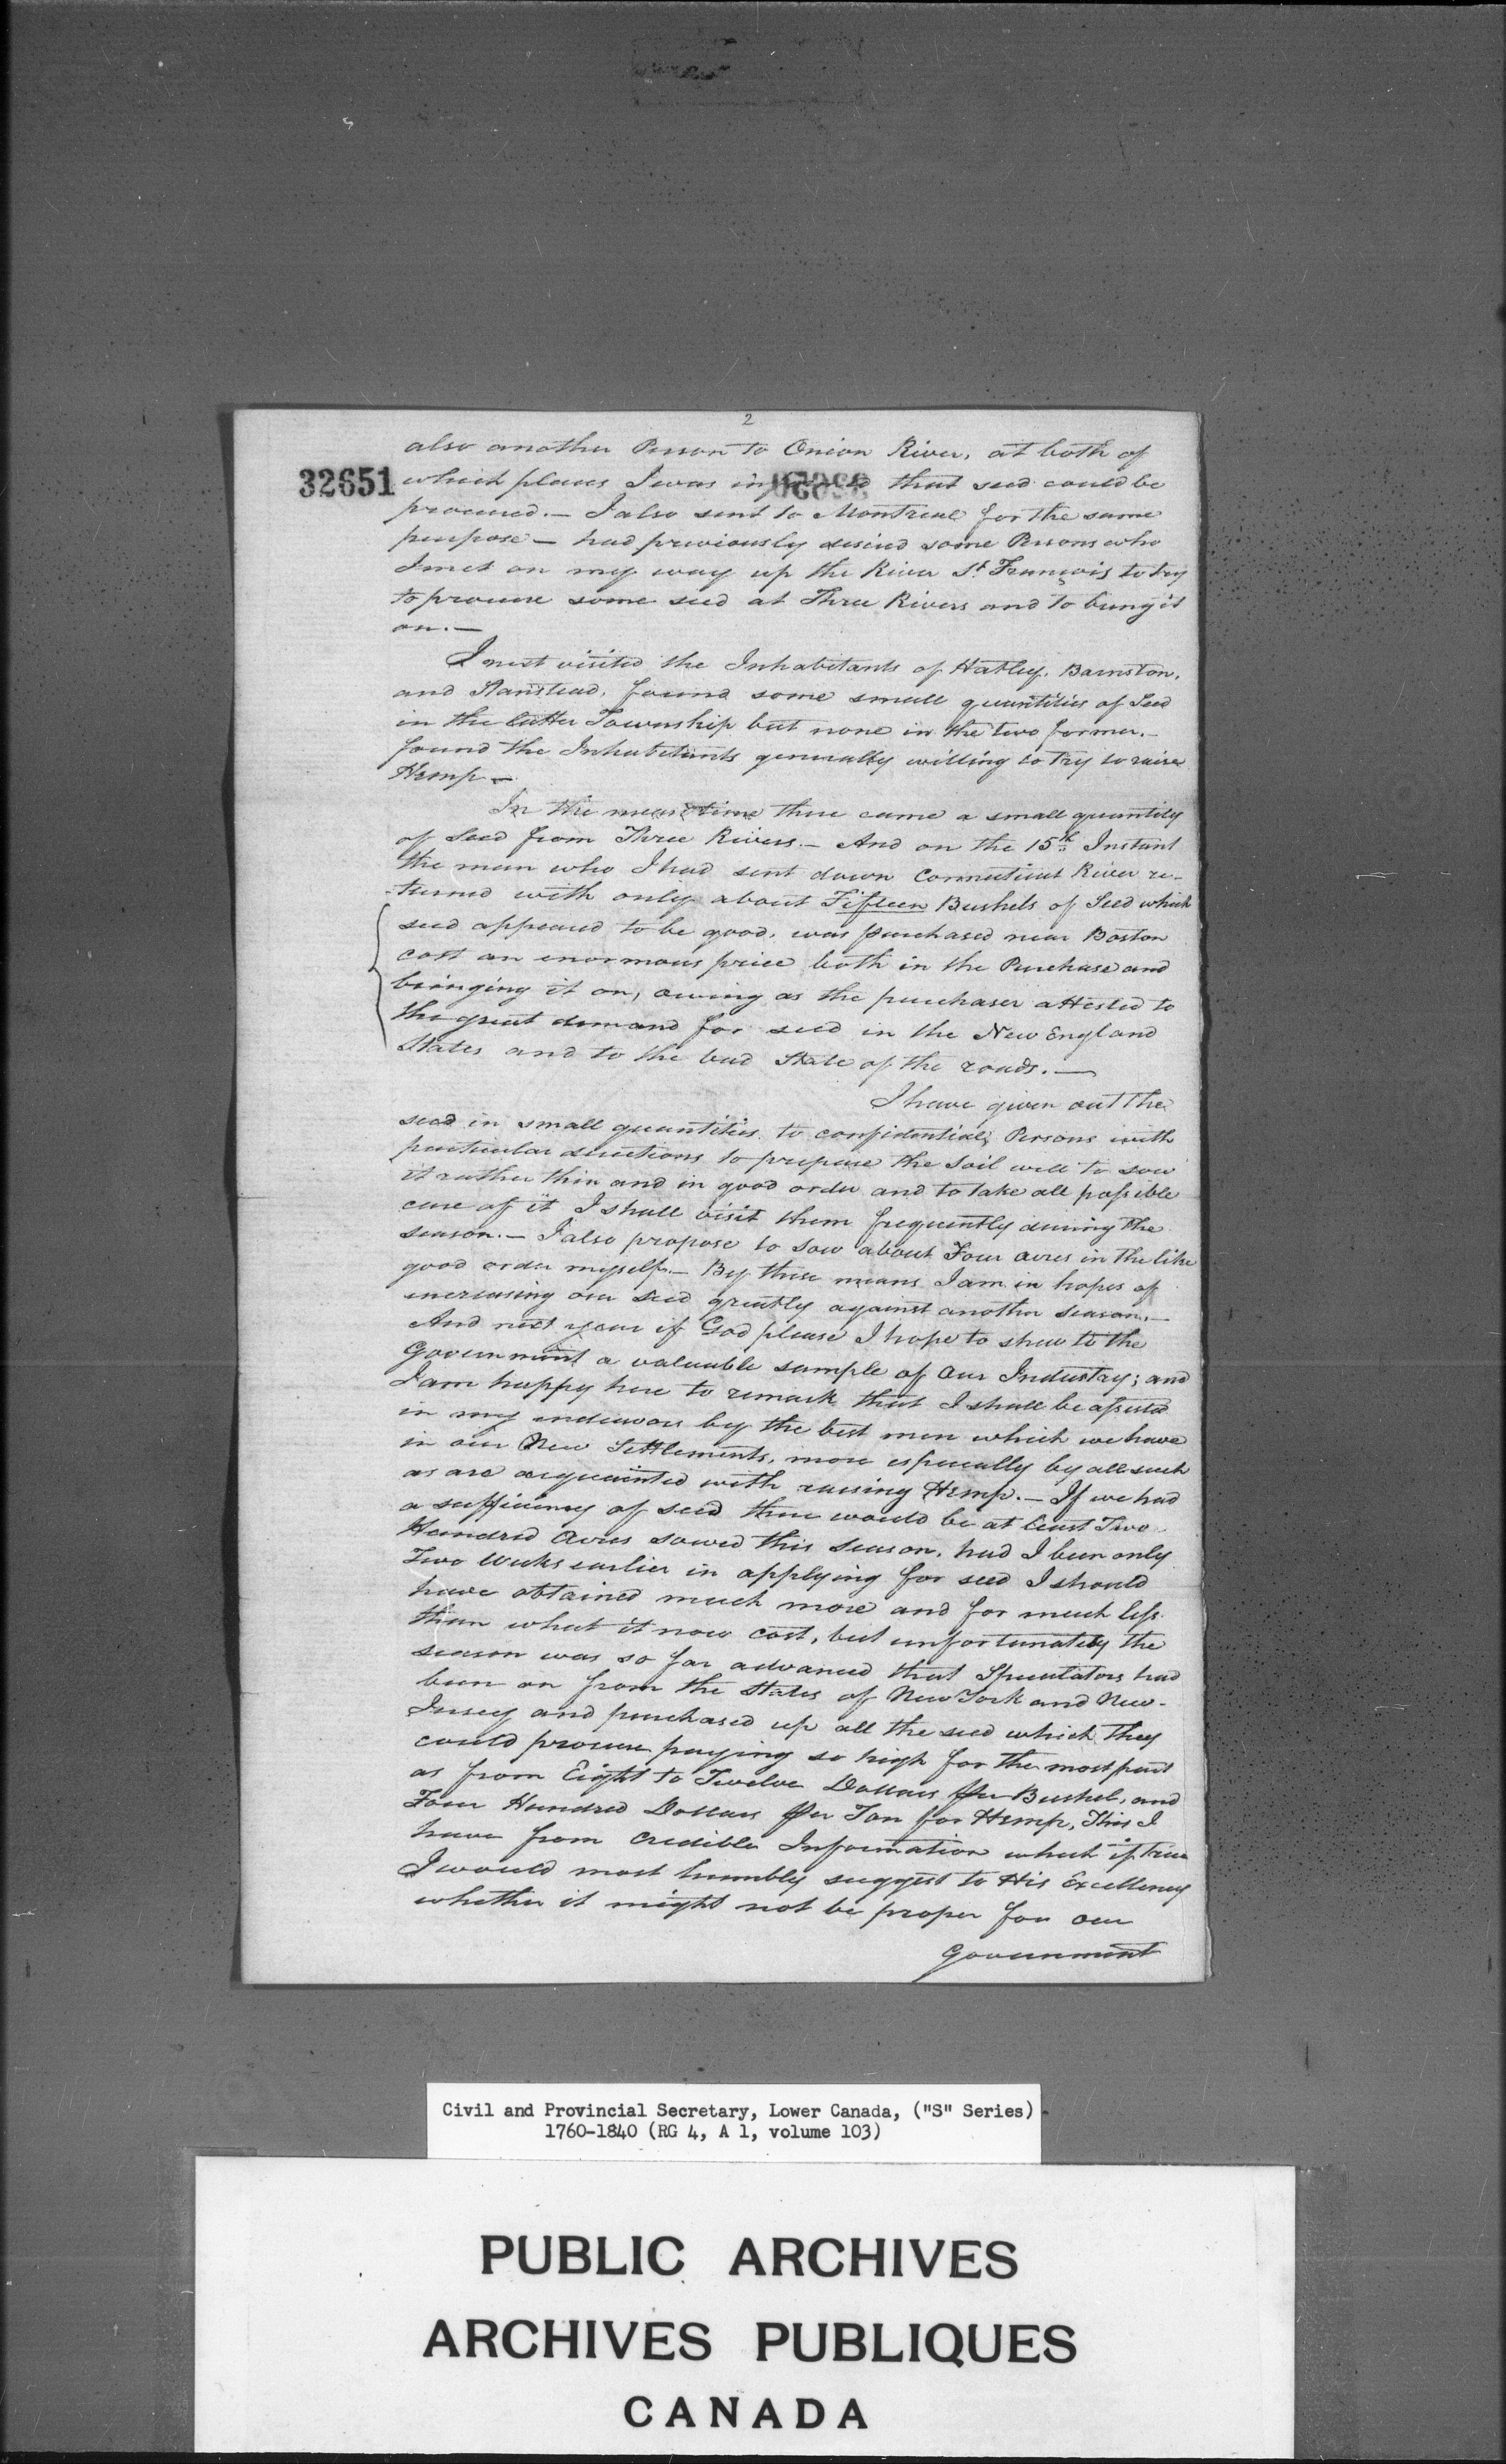 2
also another Person to Onion River, at both of
32651 which places I was informed that seed could be
procured.— I also sent to Montreal for the same
purpose — had previously desired some Persons who
I met on my way up the River St. François to try
to procure some seed at Three Rivers and to bring it
on.—
I next visited the Inhabitants of Hatley, Barnston,
and Stanstead, found some small quantities of Seed
in the latter Township but none in the two former.—
found the Inhabitants generally willing to try to raise
Hemp —
In the mean time there came a small quantity
of Seed from Three Rivers.— And on the 15th Instant
the man who I had sent down Connecticut River re-
-turned with only about Fifteen Bushels of Seed which
seed appeared to be good, was purchased near Boston
cost an enormous price both in the Purchase and
bringing it on, owing as the purchaser attested to
the great demand for seed in the New England
States and to the bad State of the roads.—
I have given out the
seed in small quantities to confidential Persons with
particular directions to prepare the Soil well to sow
it rather thin and in good order and to take all possible
care of it I shall visit them frequently during the
season.— I also propose to sow about Four acres in the like
good order myself.— By these means I am in hopes of
increasing our seed greatly against another season.—
And next year if God please I hope to shew to the
Government a valuable sample of our Industry; and
I am happy here to remark that I shall be assisted
in my endeavors by the best men which we have
in our New Settlements, more especially by all such
as are acquainted with raising Hemp.— If we had
a sufficiency of seed there would be at least Two
Hundred Acres sowed this season, had I been only
Two Weeks earlier in applying for seed I should
have obtained much more and for much less
than what it now cost, but unfortunately the
season was so far advanced that Speculators had
been on from the States of New York and New-
Jersey and purchased up all the seed which they
could procure paying so high for the most part
as from Eight to Twelve Dollars per Bushel, and
Four Hundred Dollars per Ton for Hemp, This I
have from credible Information which if true
I would most humbly suggest to His Excellency
whether it might not be proper for our
Government
Civil and Provincial Secretary, Lower Canada, ("S" Series)
1760-1840 (RG 4, A 1, volume 103)
PUBLIC ARCHIVES
ARCHIVES PUBLIQUES
CANADA